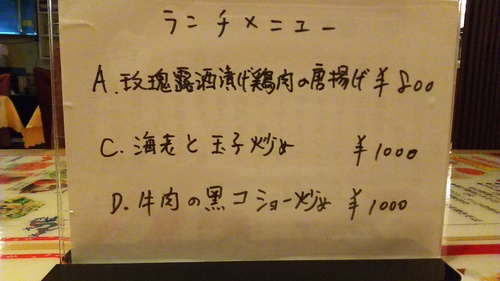 ランチメニュー
A.玫瑰露酒漬け鶏肉の唐揚げ ¥800
C.海老と玉子炒め ¥1000
D.牛肉の黒コショー炒め ¥1000